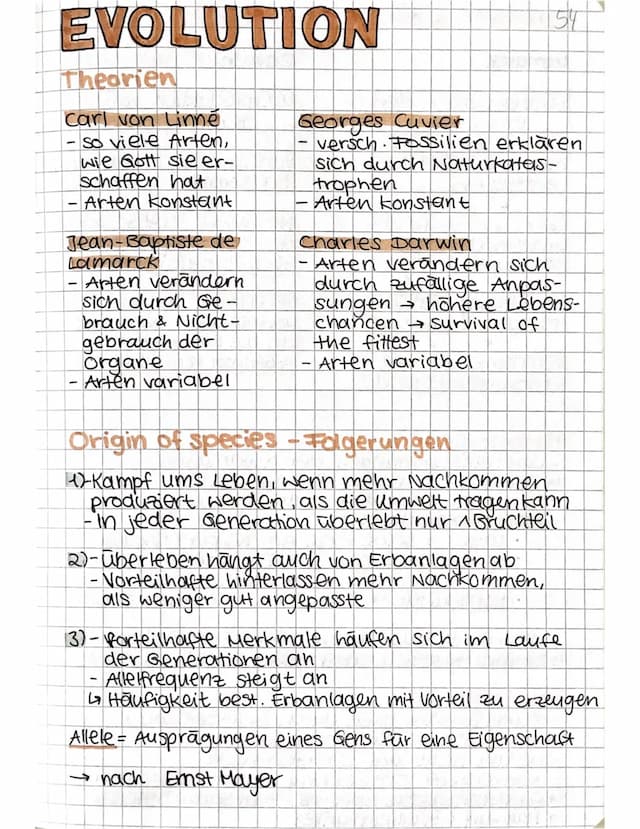 EVOLUTION
54
Theorien
Carl von Linné
- so viele Arten,
wie Gott sie er-
schaffen hat
- Arten konstant
Georges Cuvier
- versch. Fossilien erklären
sich durch Naturkatas-
trophen
- Arten konstant
Jean-Baptiste de
Lamarck
- Arten verändern
sich durch Ge-
brauch & Nicht-
gebrauch der
Organe
- Arten variabel
Charles Darwin
- Arten verändern sich
durch zufällige Anpas-
sungen → höhere Lebens-
chancen → survival of
the fittest
- Arten variabel
Origin of species - Folgerungen
1)-Kampf ums Leben, wenn mehr Nachkommen
produziert werden, als die Umwelt tragen kann
- In jeder Generation überlebt nur 1 Bruchteil
2)- Überleben hängt auch von Erbanlagen ab
- Vorteilhafte hinterlassen mehr Nachkommen,
als weniger gut angepasste
3)- Vorteilhafte Merkmale häufen sich im Laufe
der Generationen an
- Allelfrequenz steigt an
↳ Häufigkeit best. Erbanlagen mit Vorteil zu erzeugen
Allele = Ausprägungen eines Gens für eine Eigenschaft
→ nach Ernst Mayer